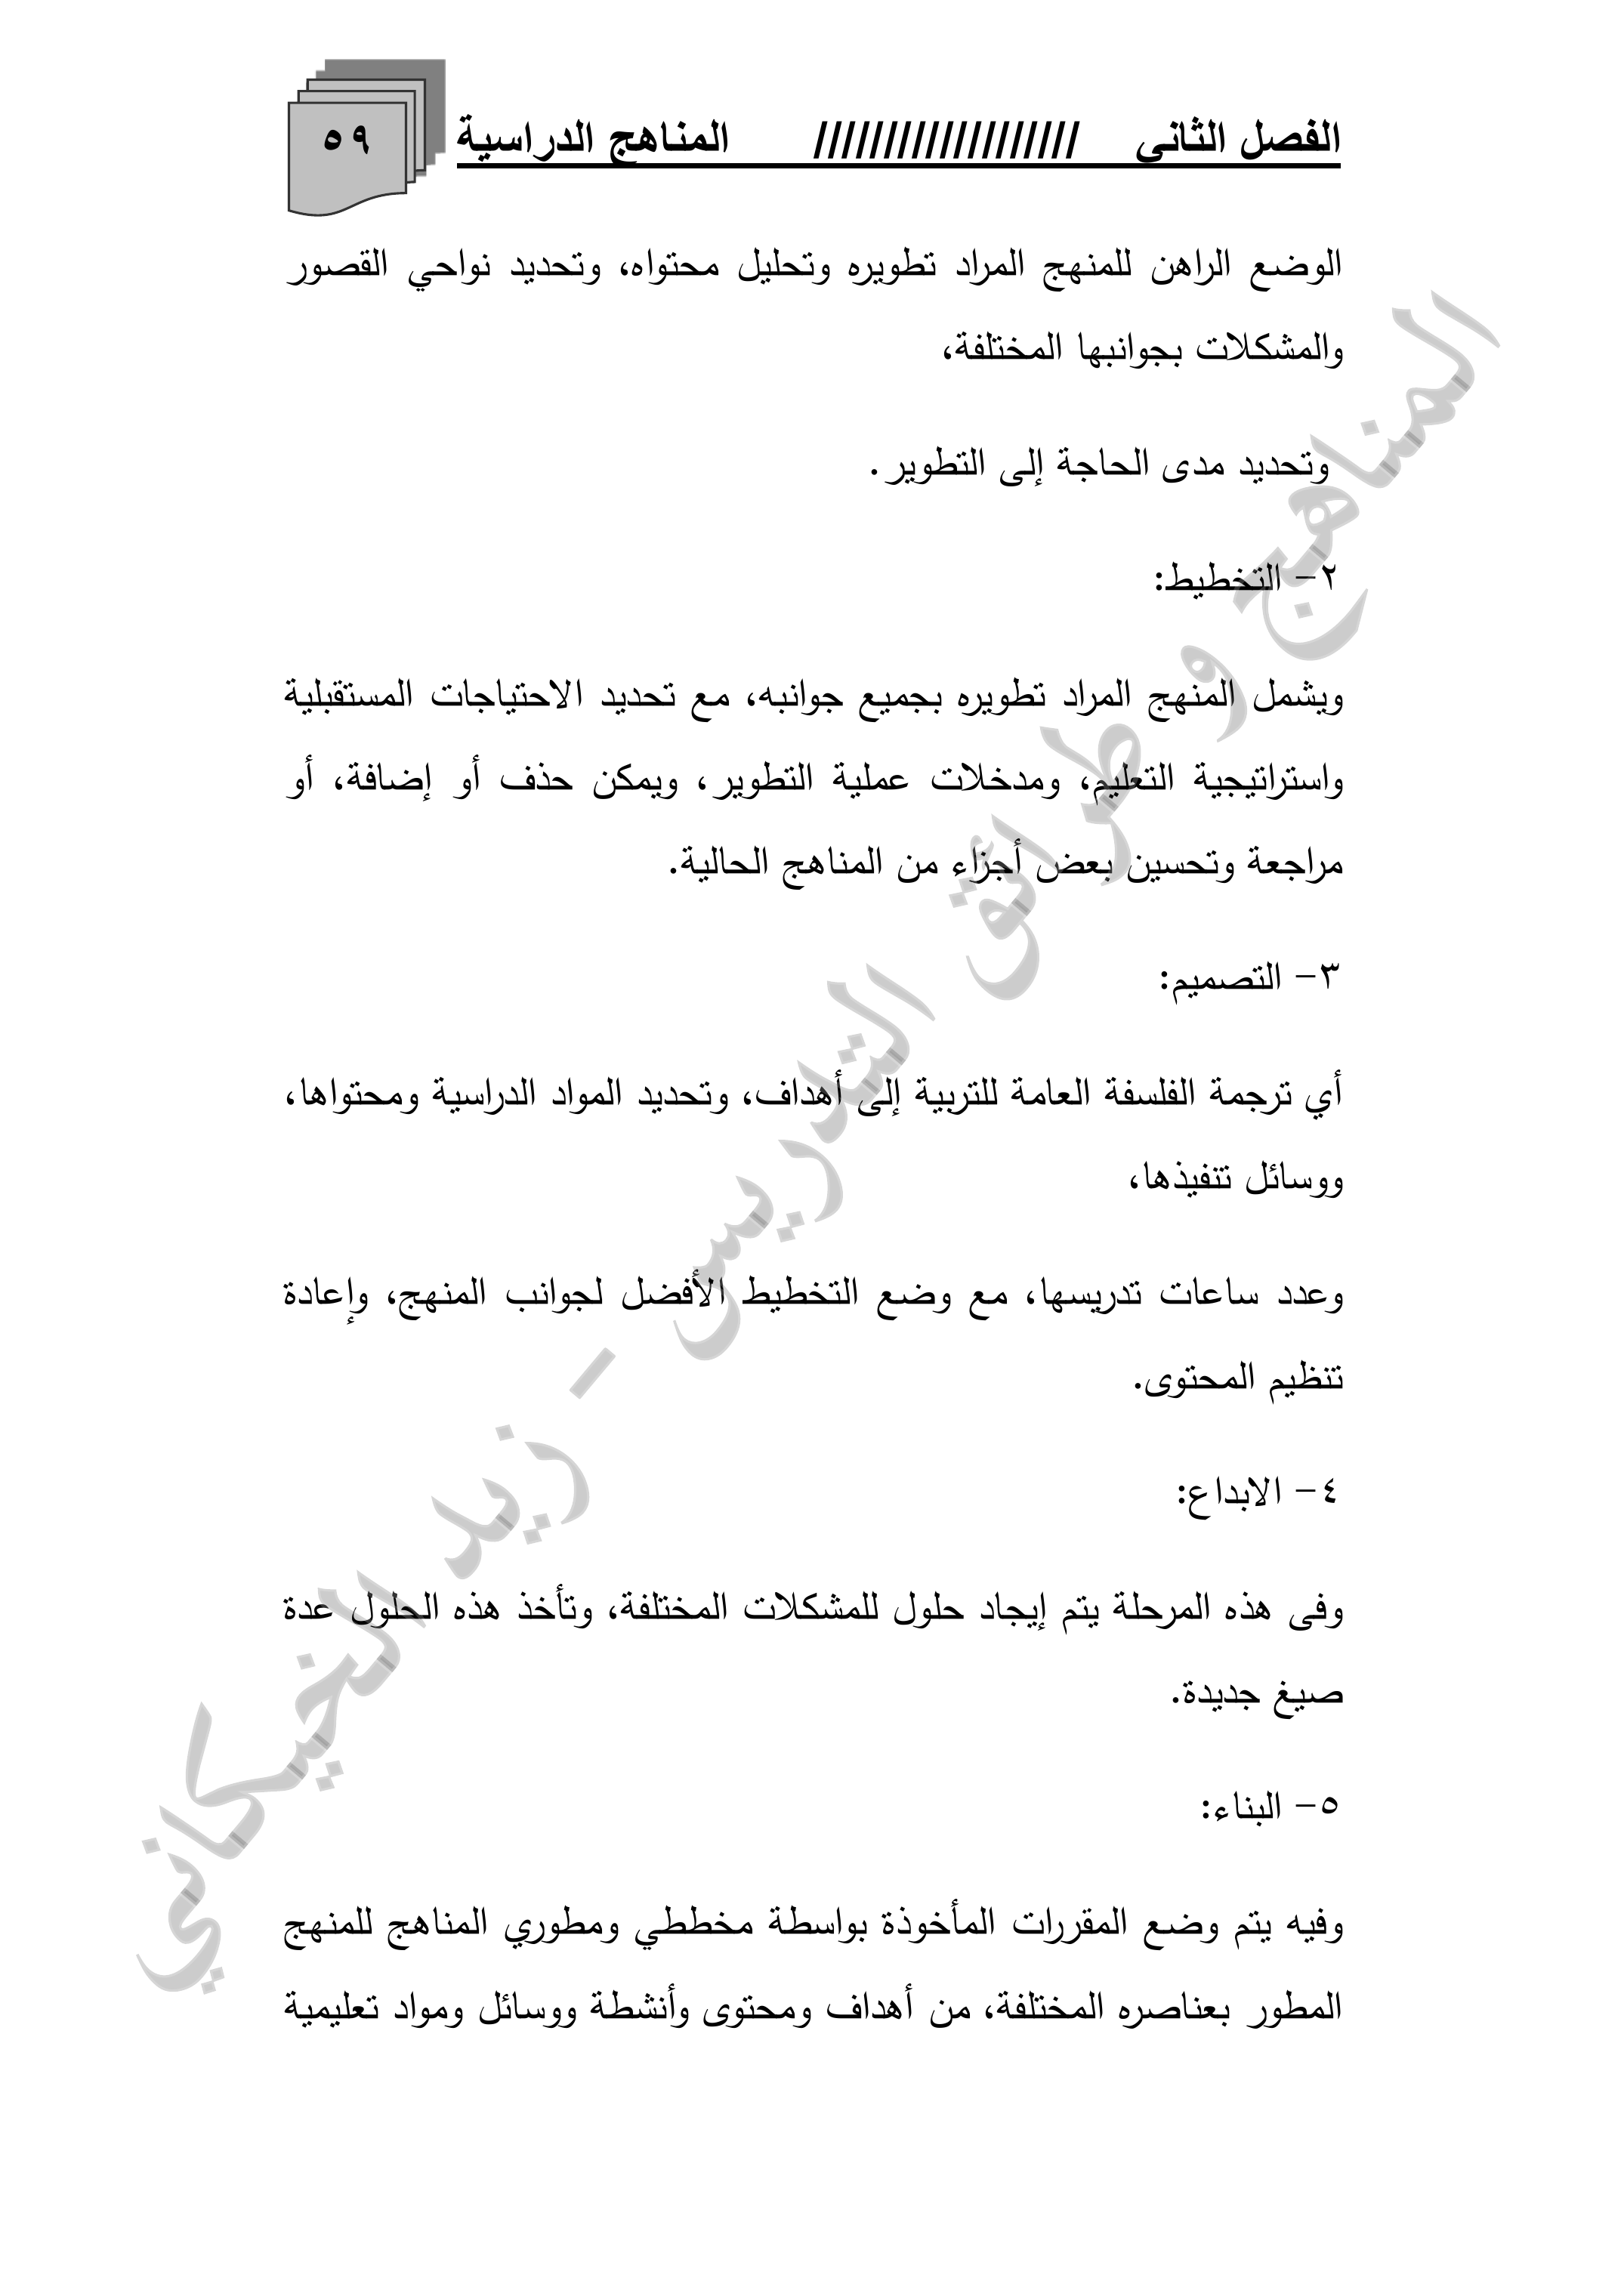 الفصل الثاني /////////////////// المناهج الدراسية ٥٩
الوضع الراهن للمنهج المراد تطويره وتحليل محتواه، وتحديد نواحي القصور
والمشكلات بجوانبها المختلفة،
وتحديد مدى الحاجة إلى التطوير.
٢- التخطيط:
ويشمل المنهج المراد تطويره بجميع جوانبه، مع تحديد الاحتياجات المستقبلية
واستراتيجية التعليم، ومدخلات عملية التطوير، ويمكن حذف أو إضافة، أو
مراجعة وتحسين بعض أجزاء من المناهج الحالية.
٣- التصميم:
أي ترجمة الفلسفة العامة للتربية إلى أهداف، وتحديد المواد الدراسية ومحتواها،
ووسائل تنفيذها،
وعدد ساعات تدريسها، مع وضع التخطيط الأفضل لجوانب المنهج، وإعادة
تنظيم المحتوى.
٤- الابداع:
وفى هذه المرحلة يتم إيجاد حلول للمشكلات المختلفة، وتأخذ هذه الحلول عدة
صيغ جديدة.
٥- البناء:
وفيه يتم وضع المقررات المأخوذة بواسطة مخططي ومطوري المناهج للمنهج
المطور بعناصره المختلفة، من أهداف ومحتوى وأنشطة ووسائل ومواد تعليمية
المناهج و طرائق التدريس - زيد الخيكاني